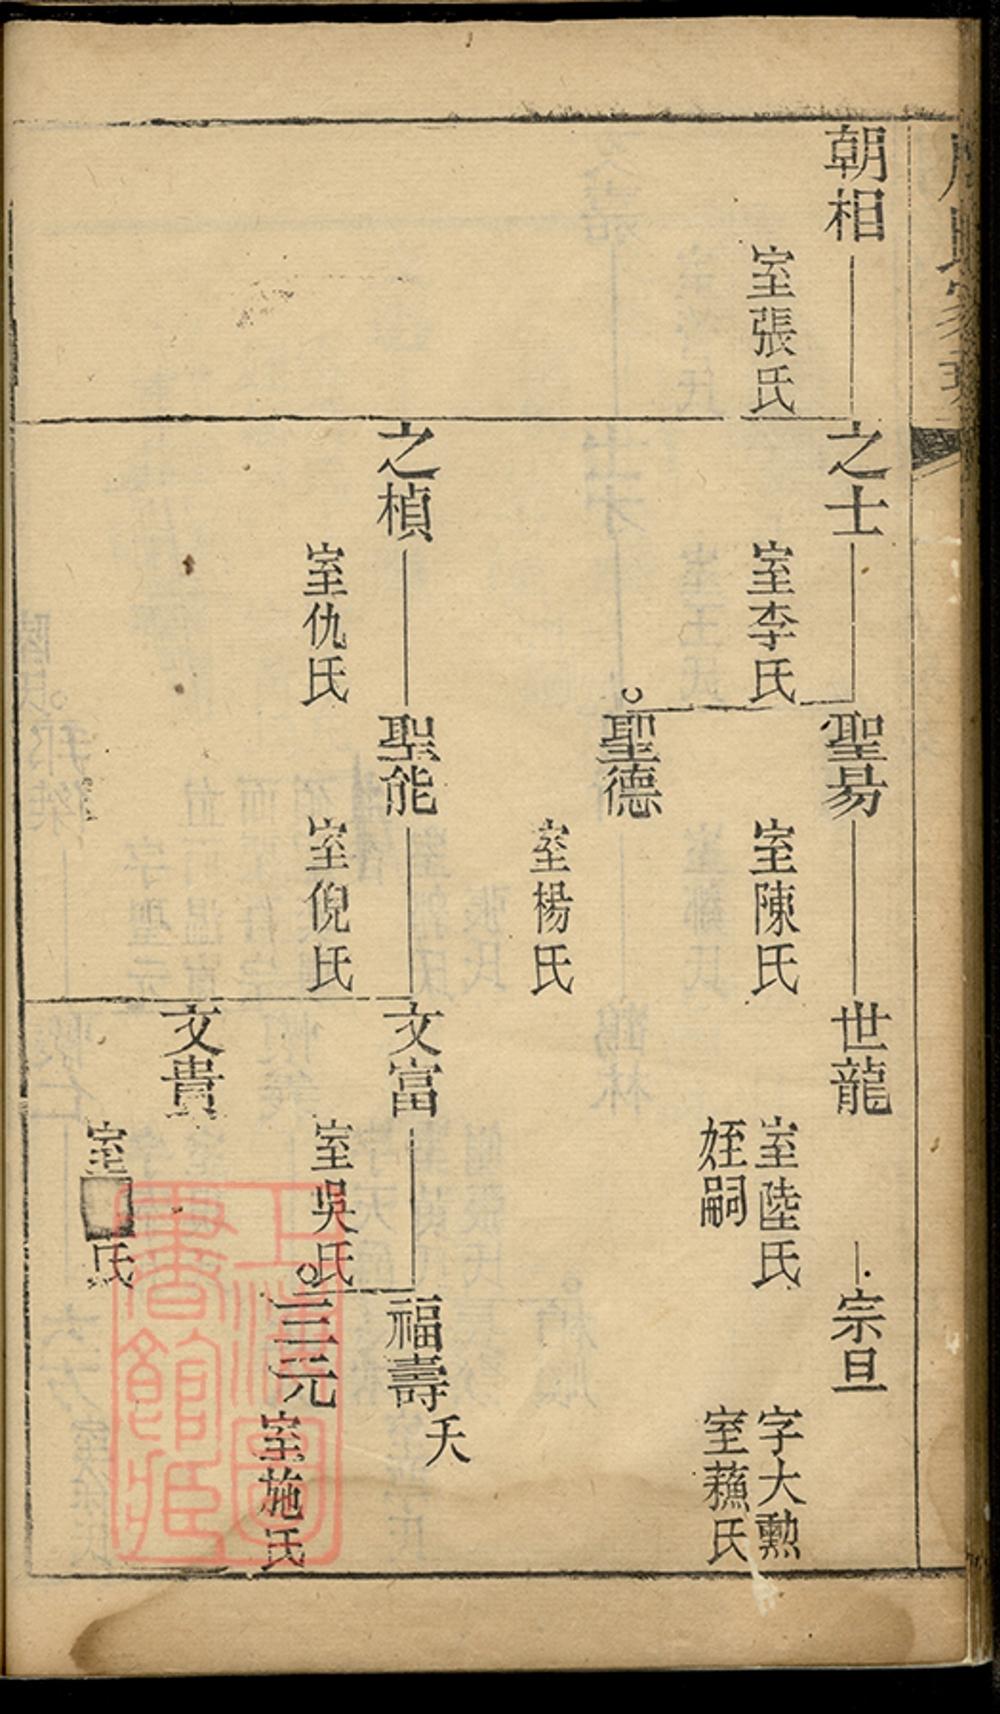 朝相
室張氏
之士
室李氏
聖易
室陳氏
世龍
室陸氏
姪嗣
宗旦
字大勲
室蘓氏
聖德
室楊氏
之楨
室仇氏
聖能
室倪氏
文富
室吳氏
福壽
夭
三元
室施氏
文貴
室 氏
上海圖
書館藏